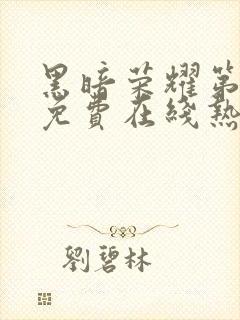 黑暗荣耀第
免費在綫熱
劉碧林